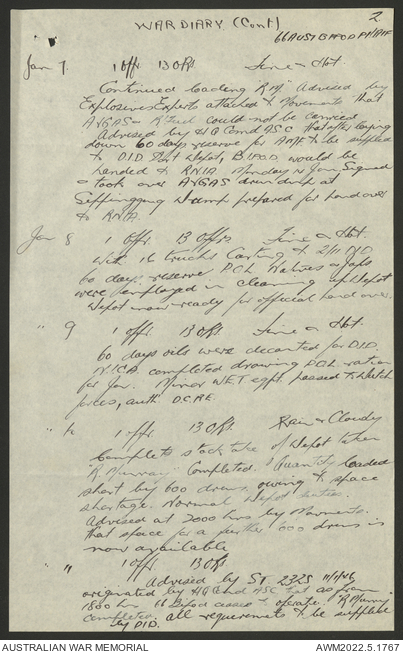 WAR DIARY (Cont)
2
66 AUST BIPOD Pl AIF
Jan 7. 1 Offr 13 ORs Fine & Hot.
Continued loading Advised by
Explosives Experts attached to Movements that
AVGAS could not be carried
Advised by HQ Comd ASC that after laying
down 60 days reserve for AMF to be supplied
to D.I.D. Depot, BIPOD would be
handed to RNIA Monday Jan. Signed
& took over AVGAS drum dump at
Dump prepared for hand over
to RNIA.
Jan 8 1 Offr. 13 ORs Fine & Hot
With 16 trucks carting to 2/11 DID
60 days reserve POL Natives & Japs
were employed in cleaning up Depot
Depot now ready for official hand over.
" 9 1 offr 13 ORs Fine & Hot.
60 days oils were decanted for DID.
NICA completed drawing POL ration
for Jan. Minor WET eqpt. passed to Dutch
forces, auth DCRE.
" 10 1 offr 13 ORs Rain & Cloudy
Complete stock take of Depot taken
"R Murray" completed. Quantity loaded
short by 600 drums, owing to space
shortage. Normal Depot duties.
Advised at 2000 hrs by Movements
that space for a further 600 drums is
now available
" 11 1 offr 13 ORs
Advised by ST 2325 11/1/46
originated by HQ Comd ASC that as from
1800 hrs 66 Bipod ceases to operate. "R Murray"
completed, all requirements to be supplied
by DID.
AUSTRALIAN WAR MEMORIAL
AWM2022.5.1767